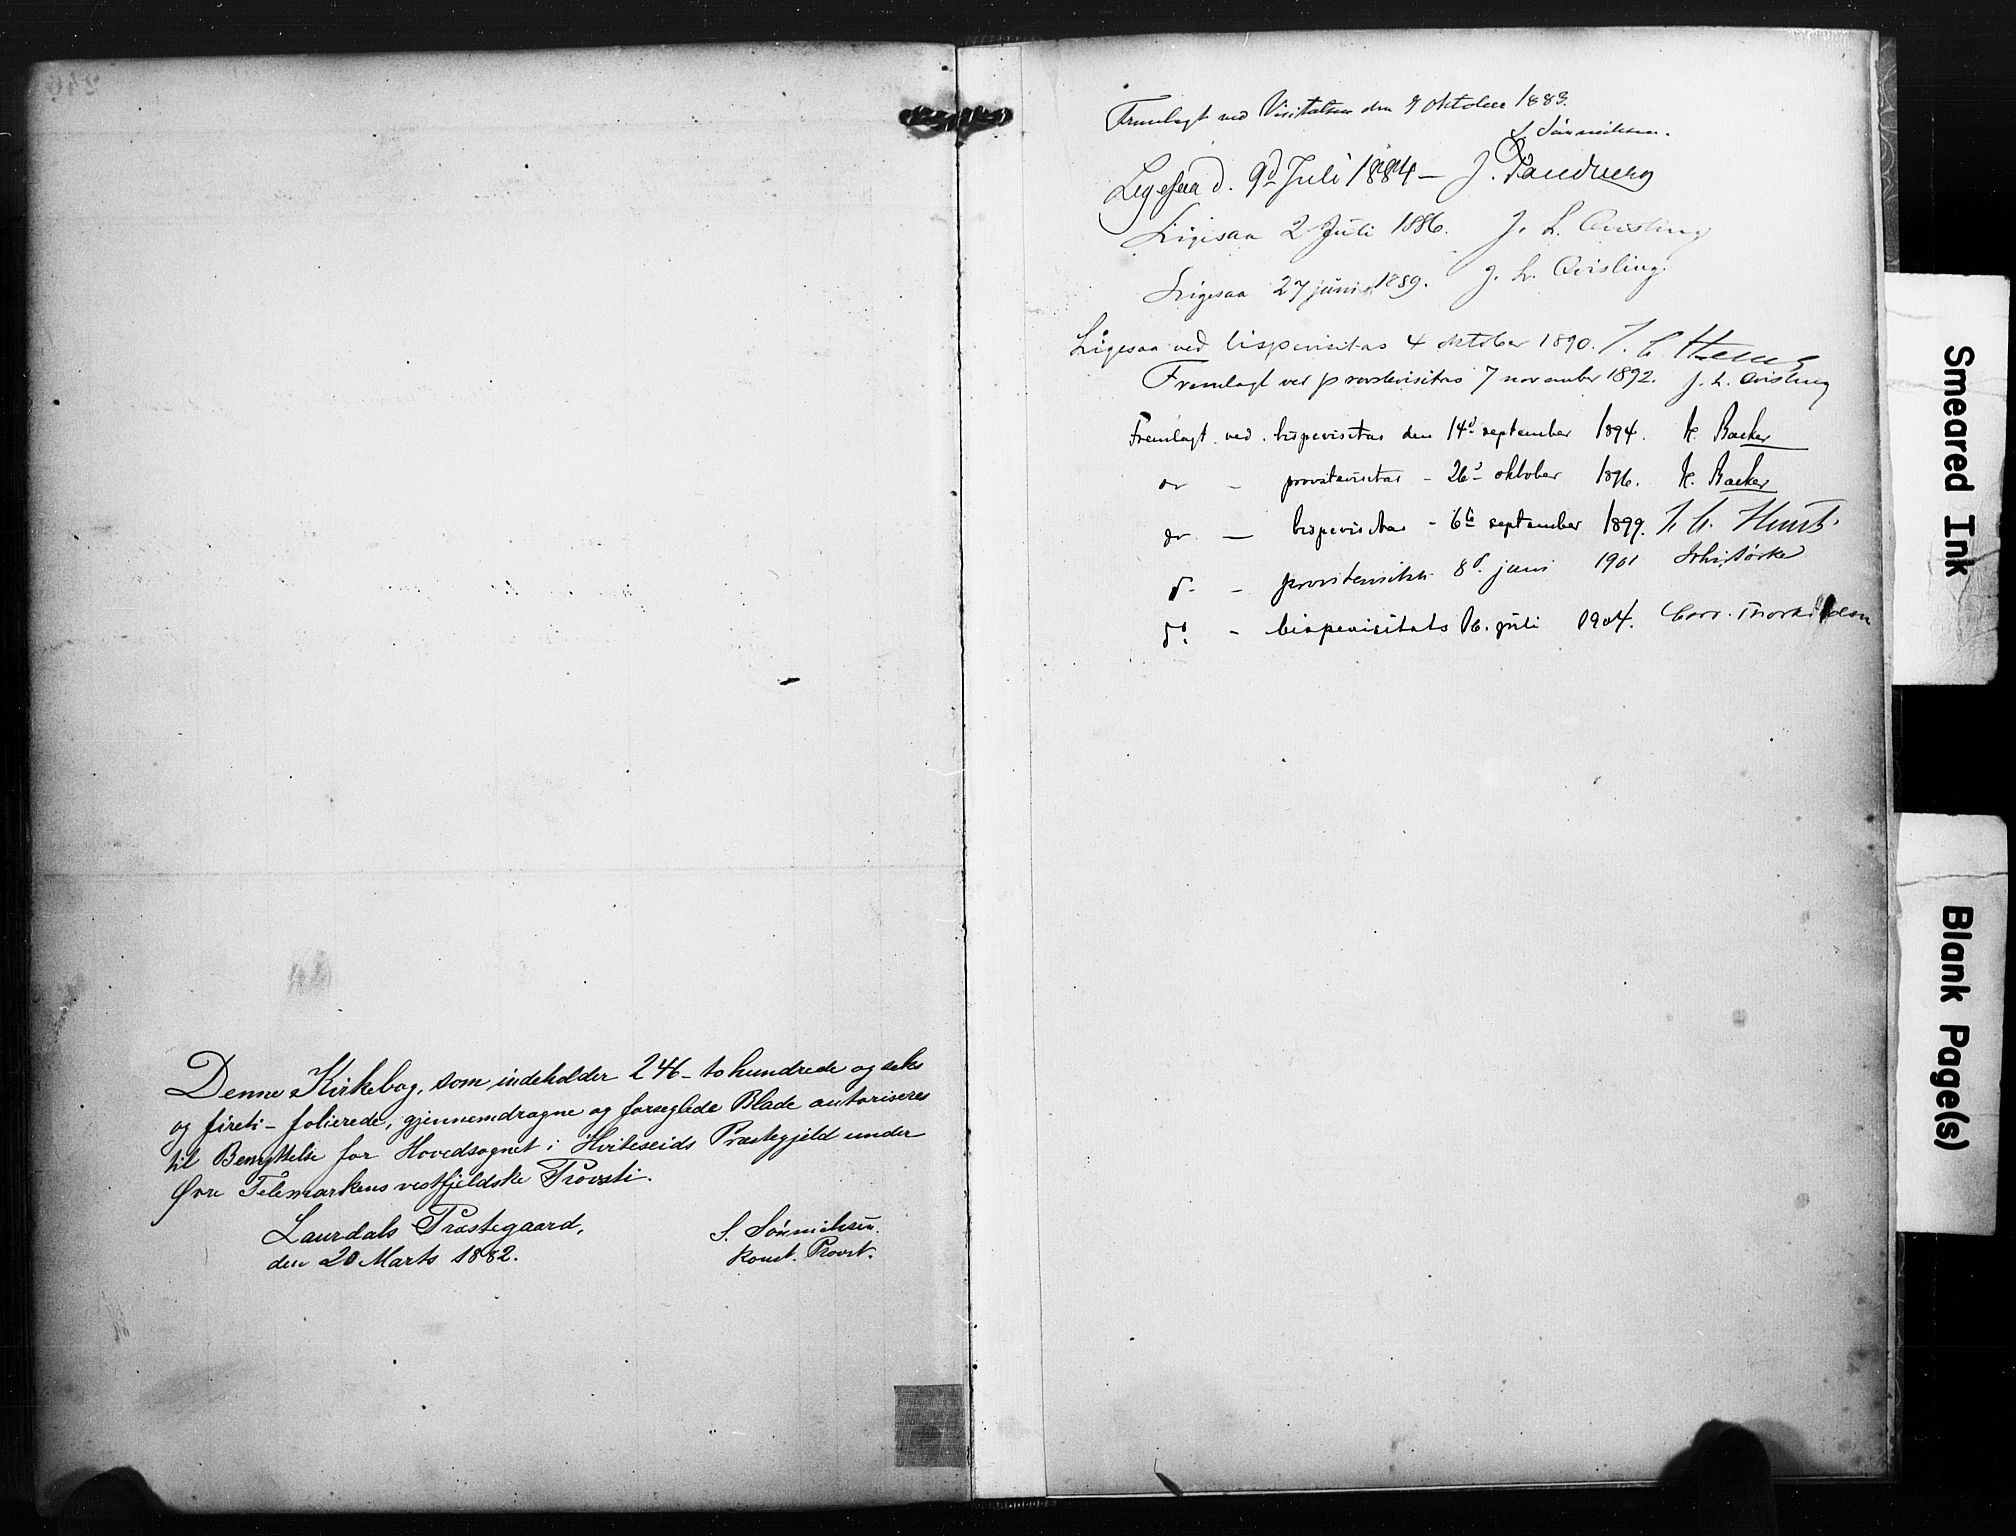 Denne Kirkebog, som indeholder 246 - to hundrede og seks
og fireti - folierede, gjennemdragne og forseglede Blade autoriseres
til Benyttelse for Hovedsognet i Hviteseids Præstegjeld under
Øvre Telemarkens vestfjeldske Provsti.
Laurdals Præstegaard,
den 20 Marts 1882.
S. Sönnichsen.
konst. Provst.
Fremlagt ved Visitatsen den 9 Oktober 1883.
S. Sönnichsen.
Ligesaa d. 9d Juli 1884 - J.
Ligesaa 2 Juli 1886. J. L. Qvisling
Ligesaa 27 juni 1889. J. L. Qvisling.
Ligesaa ved bispevisitas 4 oktober 1890. J. C. Heuch
Fremlagt ved provstevisitas 7 november 1892. J. L. Qvisling
Fremlagt ved bispevisitas den 14d september 1894. K. Backer
do - provstevisitas - 26d oktober 1896. K. Backer
do - bispevisitas - 6te september 1899. J. C. Heuch
do - provstevisitas 8d juni 1901
do - bispevisitats 16. juli 1904.
Smeared Ink
Blank Page(s)